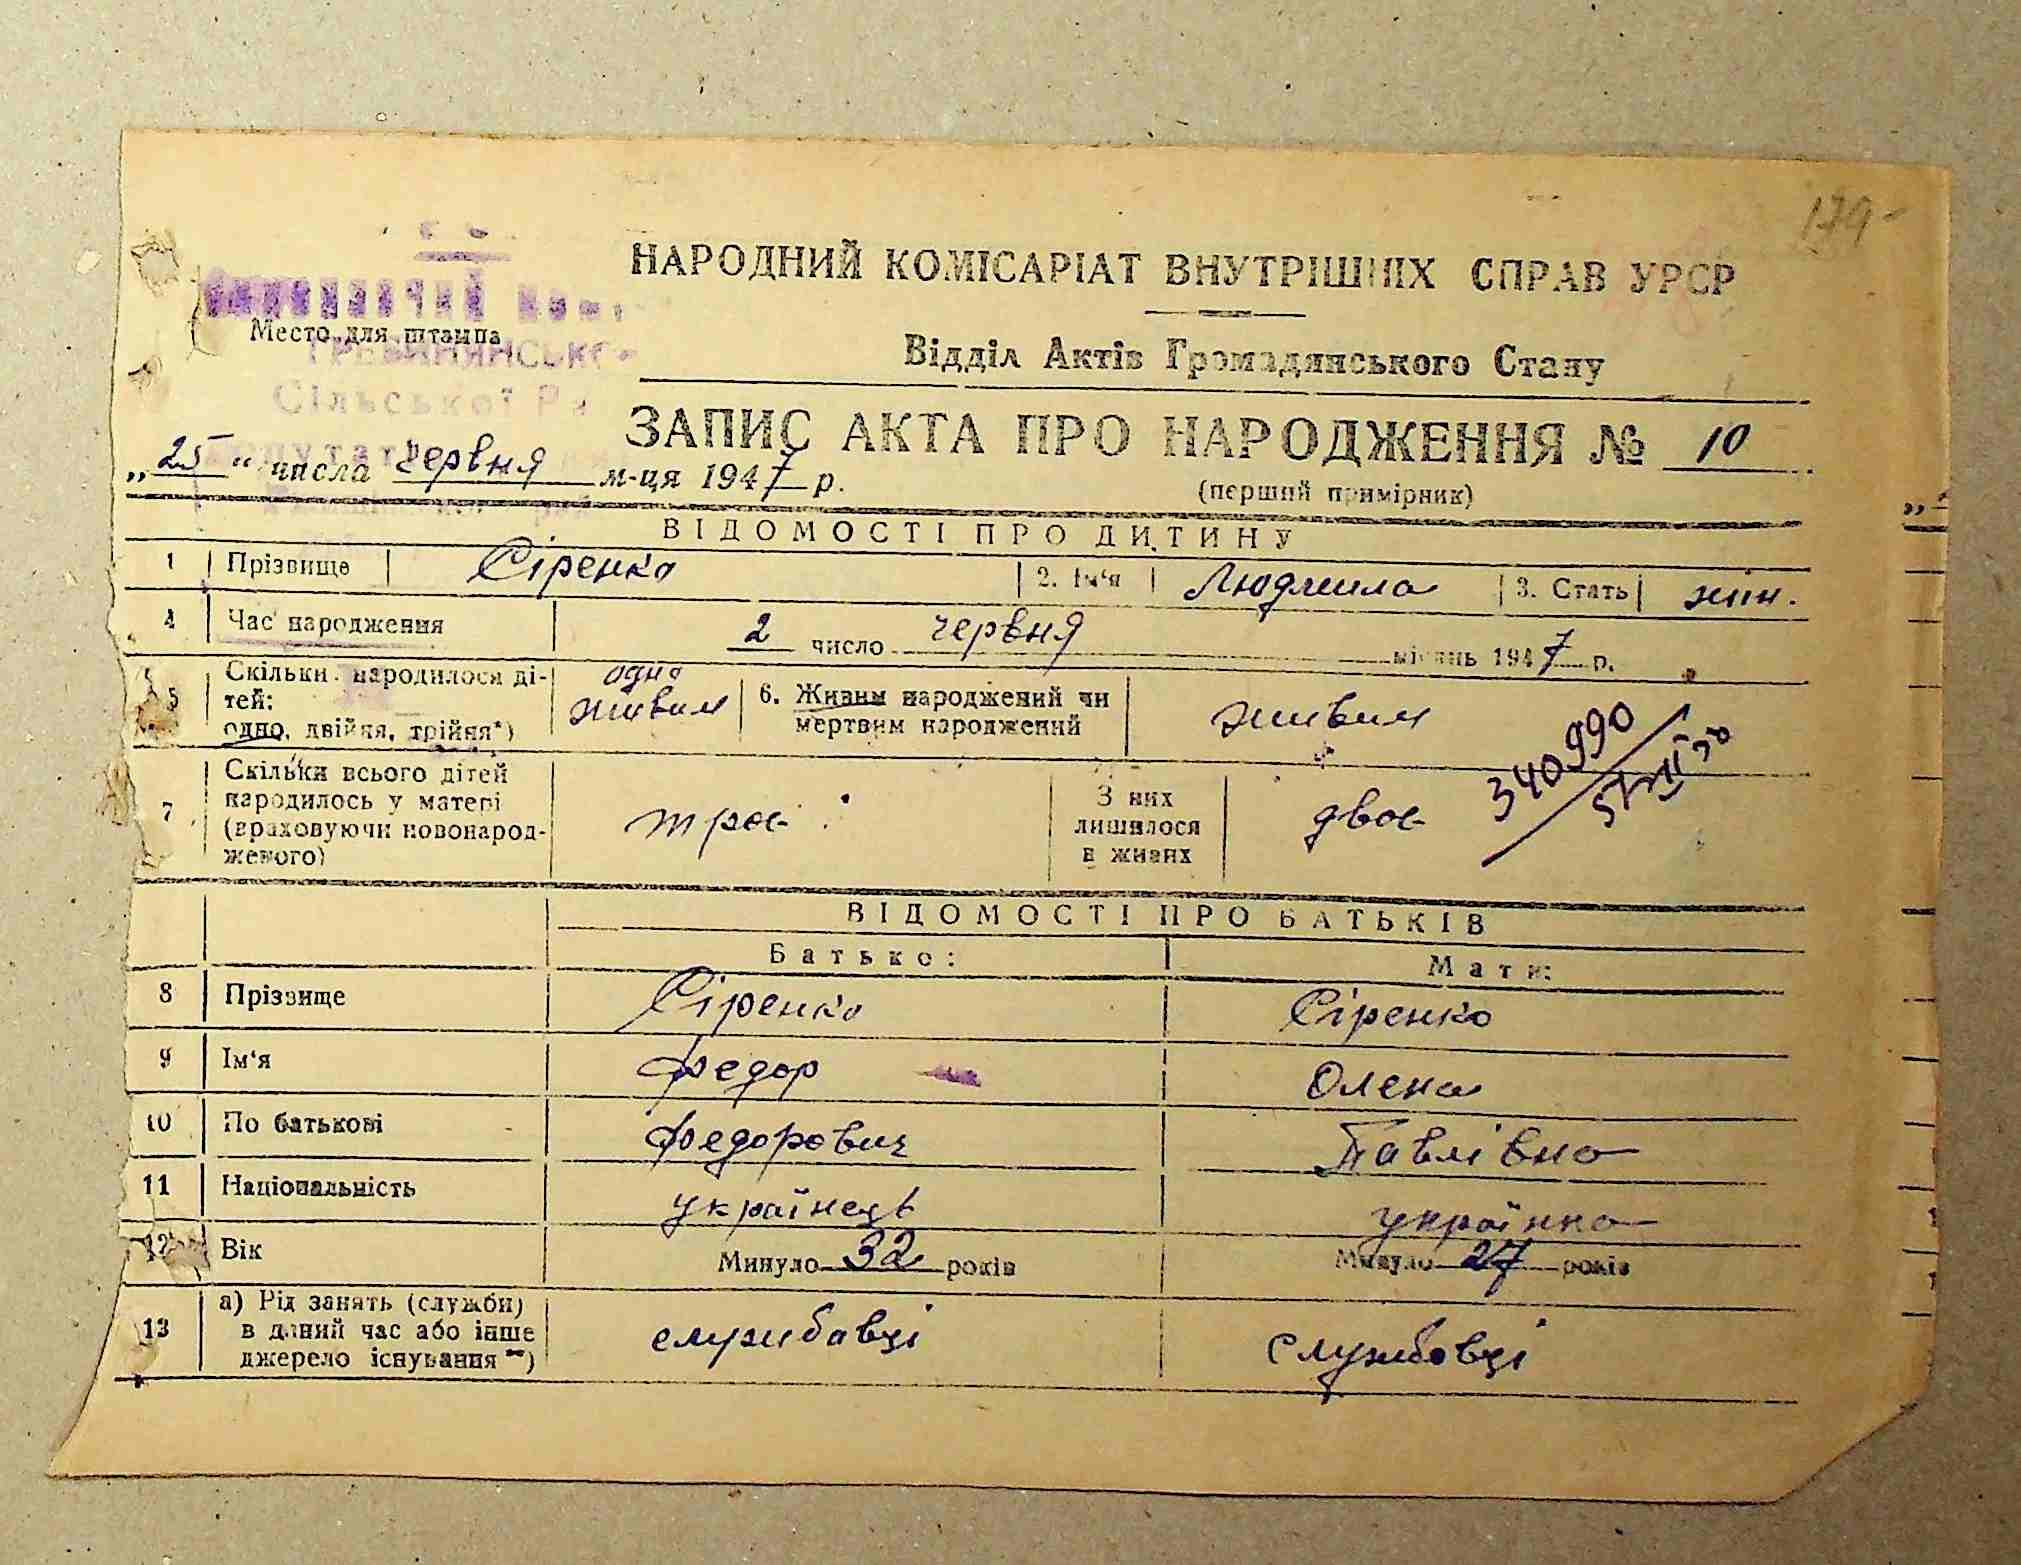 179-
НАРОДНИЙ КОМІСАРІАТ ВНУТРІШНІХ СПРАВ УРСР
Место для штампа
Відділ Актів Громадянського Стану
Сільської
ЗАПИС АКТА ПРО НАРОДЖЕННЯ № 10
„25“ числа червня м-ця 1947 р.
(перший примірник)
ВІДОМОСТІ ПРО ДИТИНУ
1 Прізвище Сіренко 2. Ім'я Людмила 3. Стать жін.
4 Час народження 2 число червня місяць 1947 р.
5 Скільки народилося ді-
тей:
одно, двійня, трійня*)
одно
живим
6. Живим народжений чи
мертвим народжений
живим
7 Скільки всього дітей
народилось у матері
(враховуючи новонарод-
женого)
троє
З них
лишилося
в живих
двоє
340990
ВІДОМОСТІ ПРО БАТЬКІВ
Батько: Мати:
8 Прізвище Сіренко Сіренко
9 Ім'я Федор Олена
10 По батькові Федорович Павлівна
11 Національність українець українка
12 Вік Минуло 32 років Минуло 27 років
13 а) Рід занять (служби)
в даний час або інше
джерело існування **)
службавці службовці